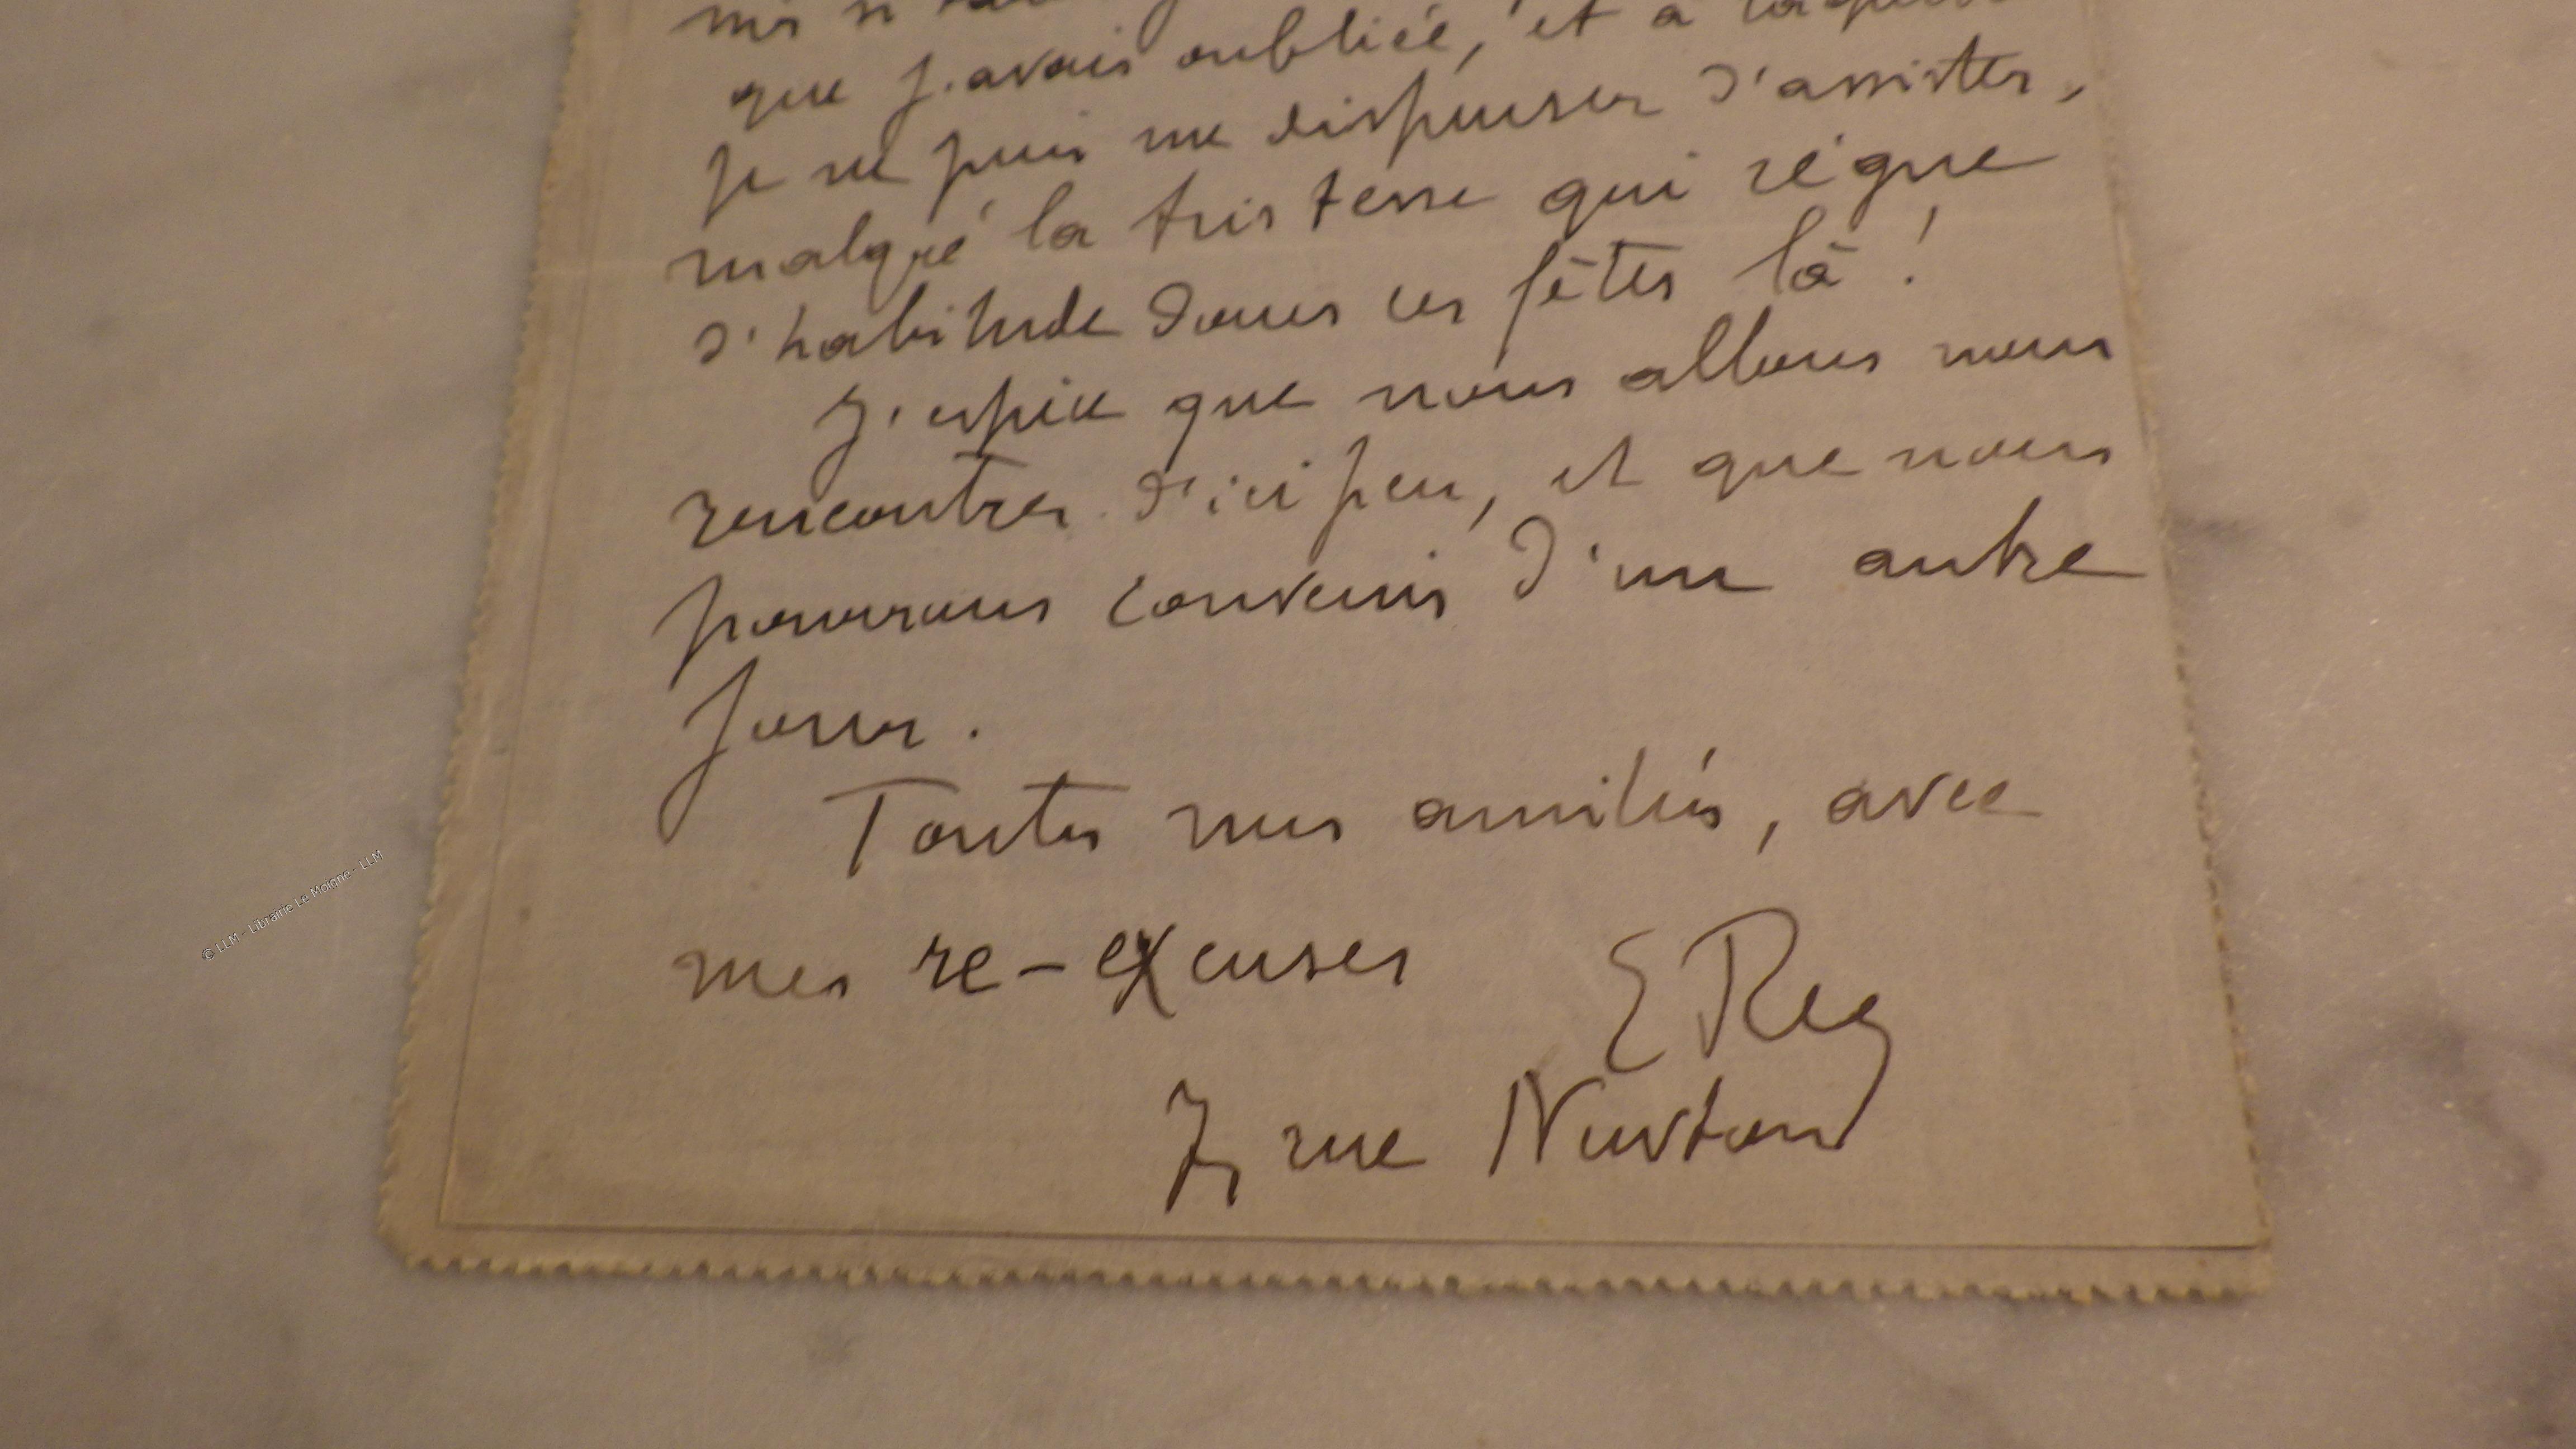 que j'avais oubliée, et à
je ne puis me dispenser d'assister,
malgré la tristesse qui règne
d'habitude dans ces fêtes là !
J'espère que nous allons nous
rencontrer d'ici peu, et que nous
pourrons convenir d'un autre
jour.
Toutes mes amitiés, avec
mes re-excuses
E Rey
7, rue Newton
© LLM - Librairie Le Moigne - LLM